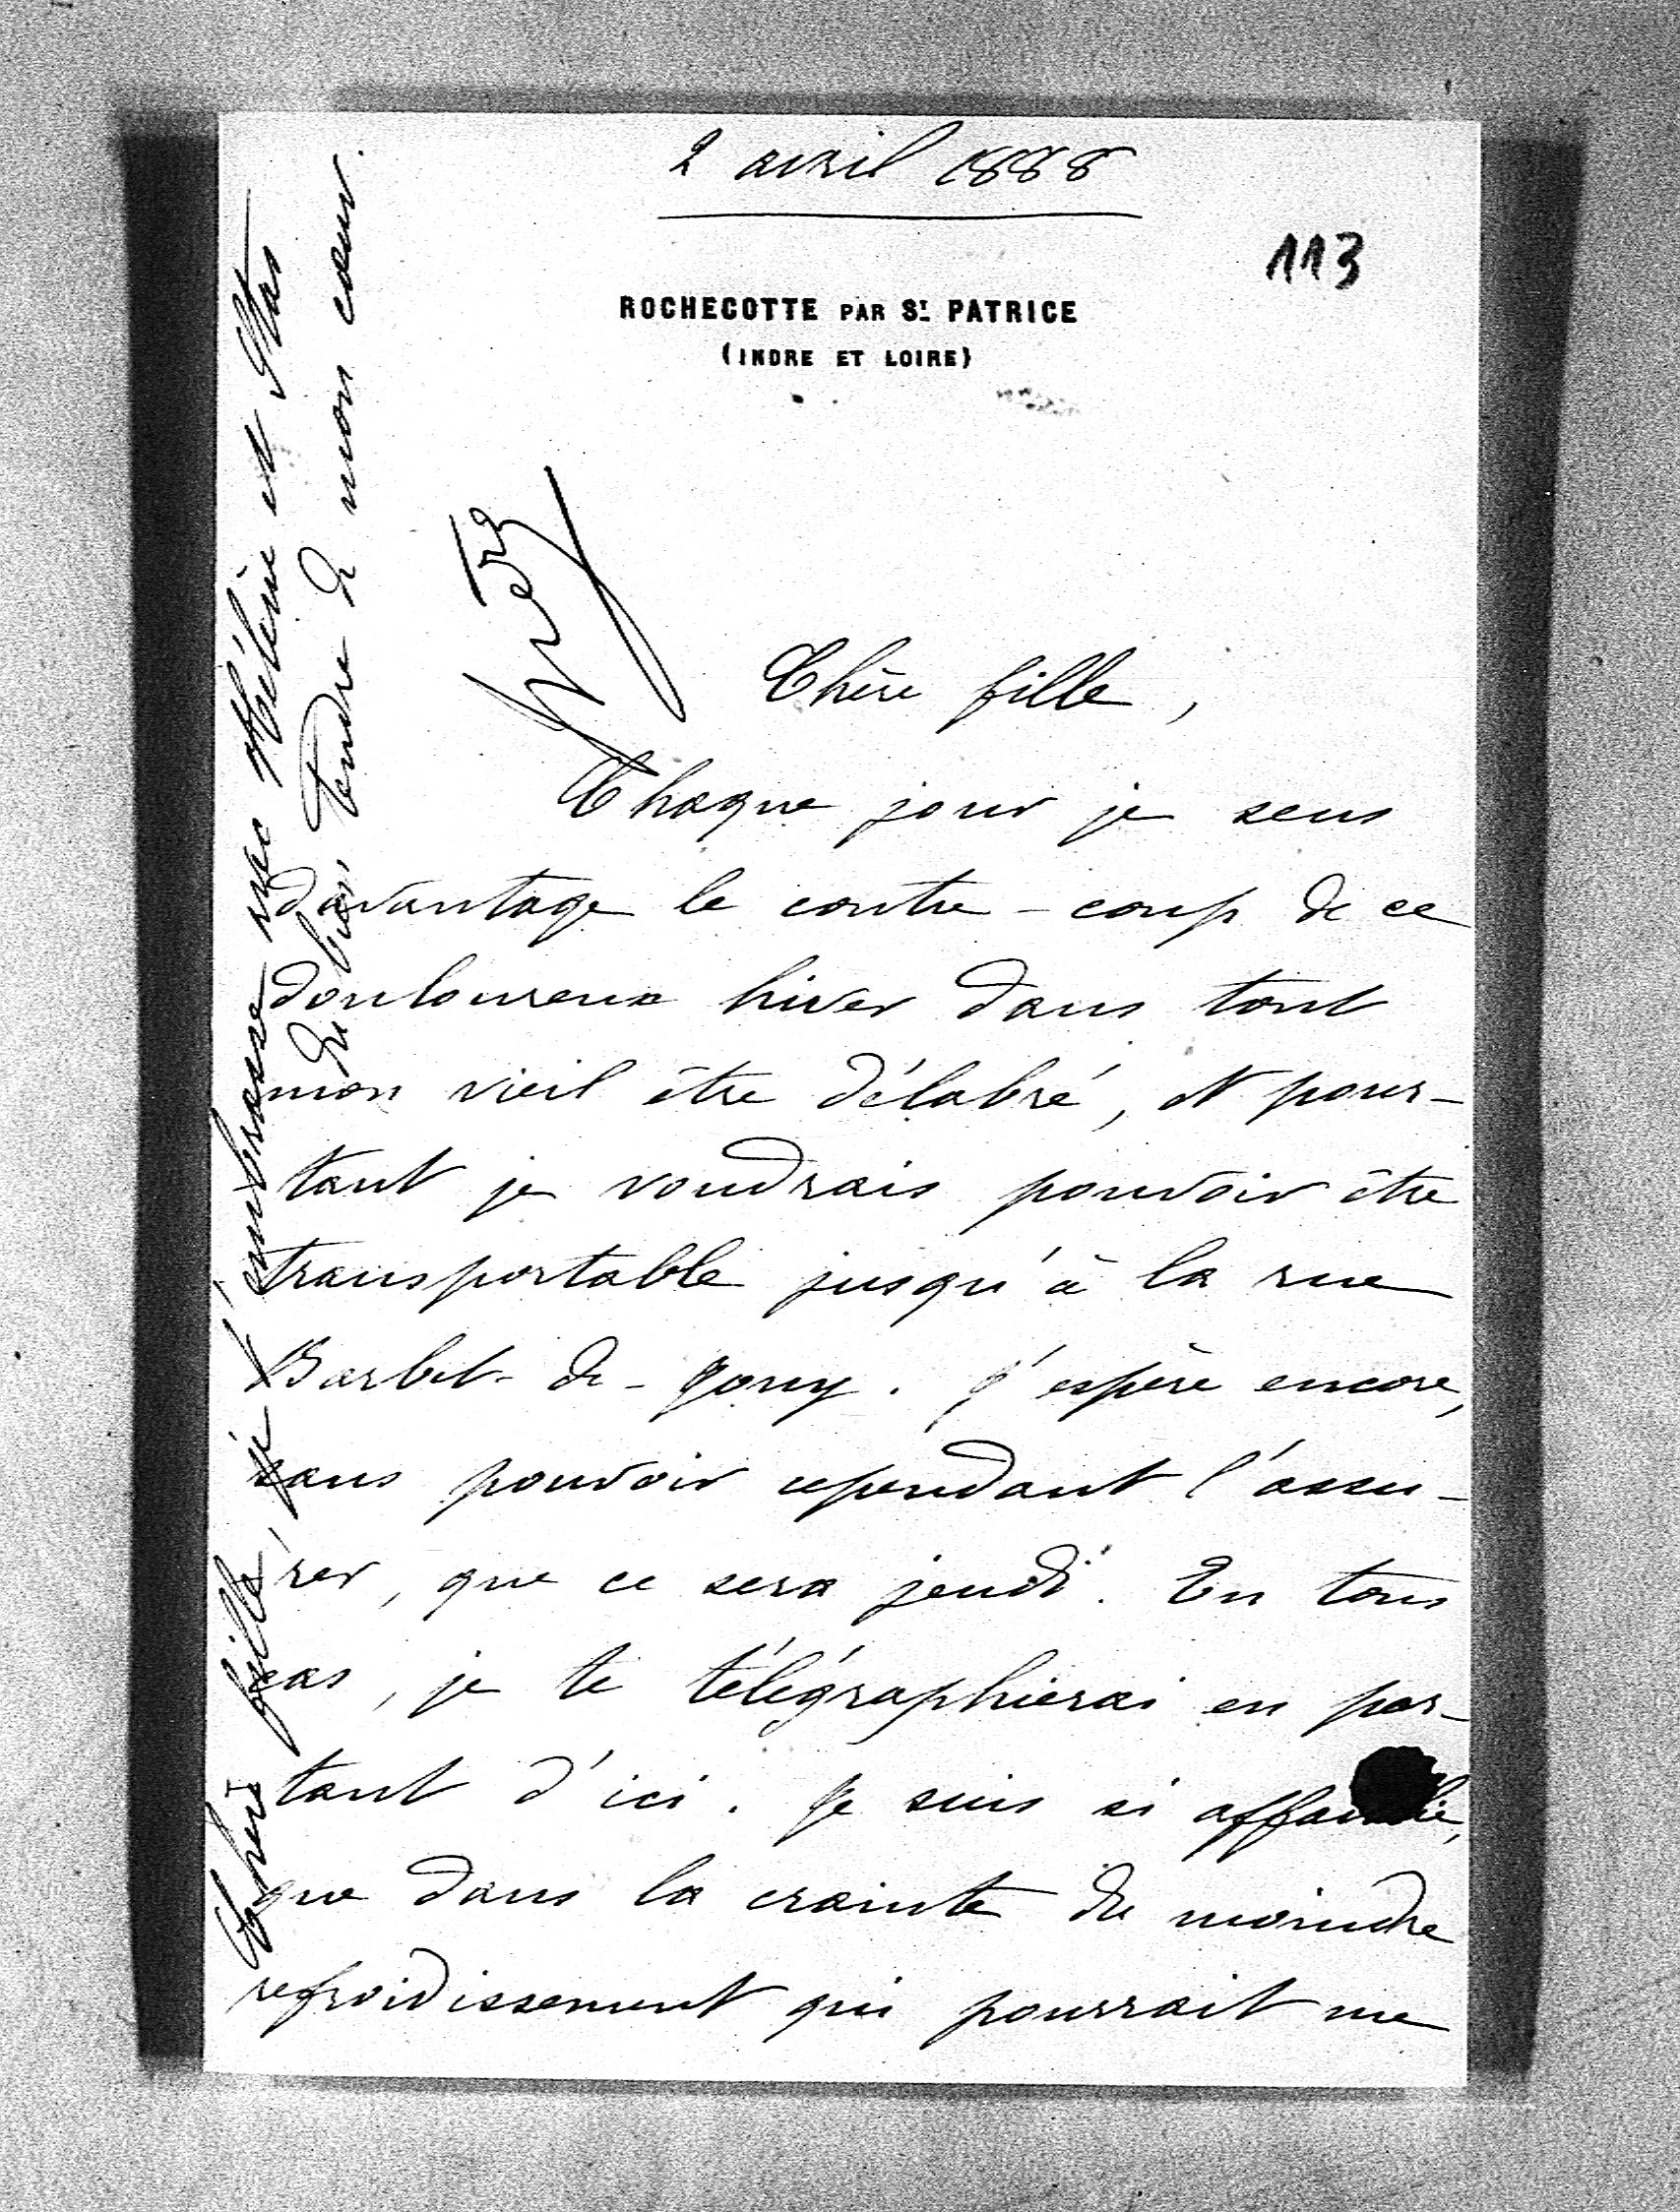 2 avril 1888
113
ROCHECOTTE PAR ST. PATRICE
(INDRE ET LOIRE)
Chère fille,
Chaque jour je sens
davantage le contre-coup de ce
douloureux hiver dans tout
mon vieil être délabré, et pour-
tant je voudrais pouvoir être
transportable jusqu'à la rue
Barbet-de-Jouy. J'espère encore,
sans pouvoir cependant l'assu-
rer, que ce sera jeudi. En tous
cas, je te télégraphierai en par-
tant d'ici. Je suis si affaiblie,
que dans la crainte du moindre
refroidissement qui pourrait me
Chère fille, je t'embrasse avec Hélène et Stas
du bien tendre de mon cœur.